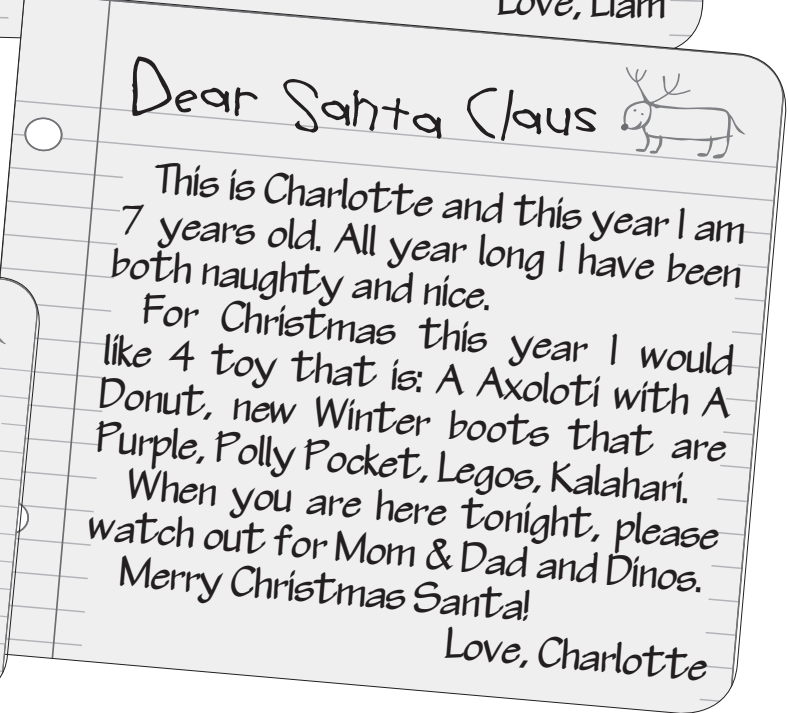 Love, Liam
Dear Santa Claus
This is Charlotte and this year I am
7 years old. All year long I have been
both naughty and nice.
For Christmas this year I would
like 4 toy that is: A Axoloti with A
Donut, new Winter boots that are
Purple, Polly Pocket, Legos, Kalahari.
When you are here tonight, please
watch out for Mom & Dad and Dinos.
Merry Christmas Santa!
Love, Charlotte